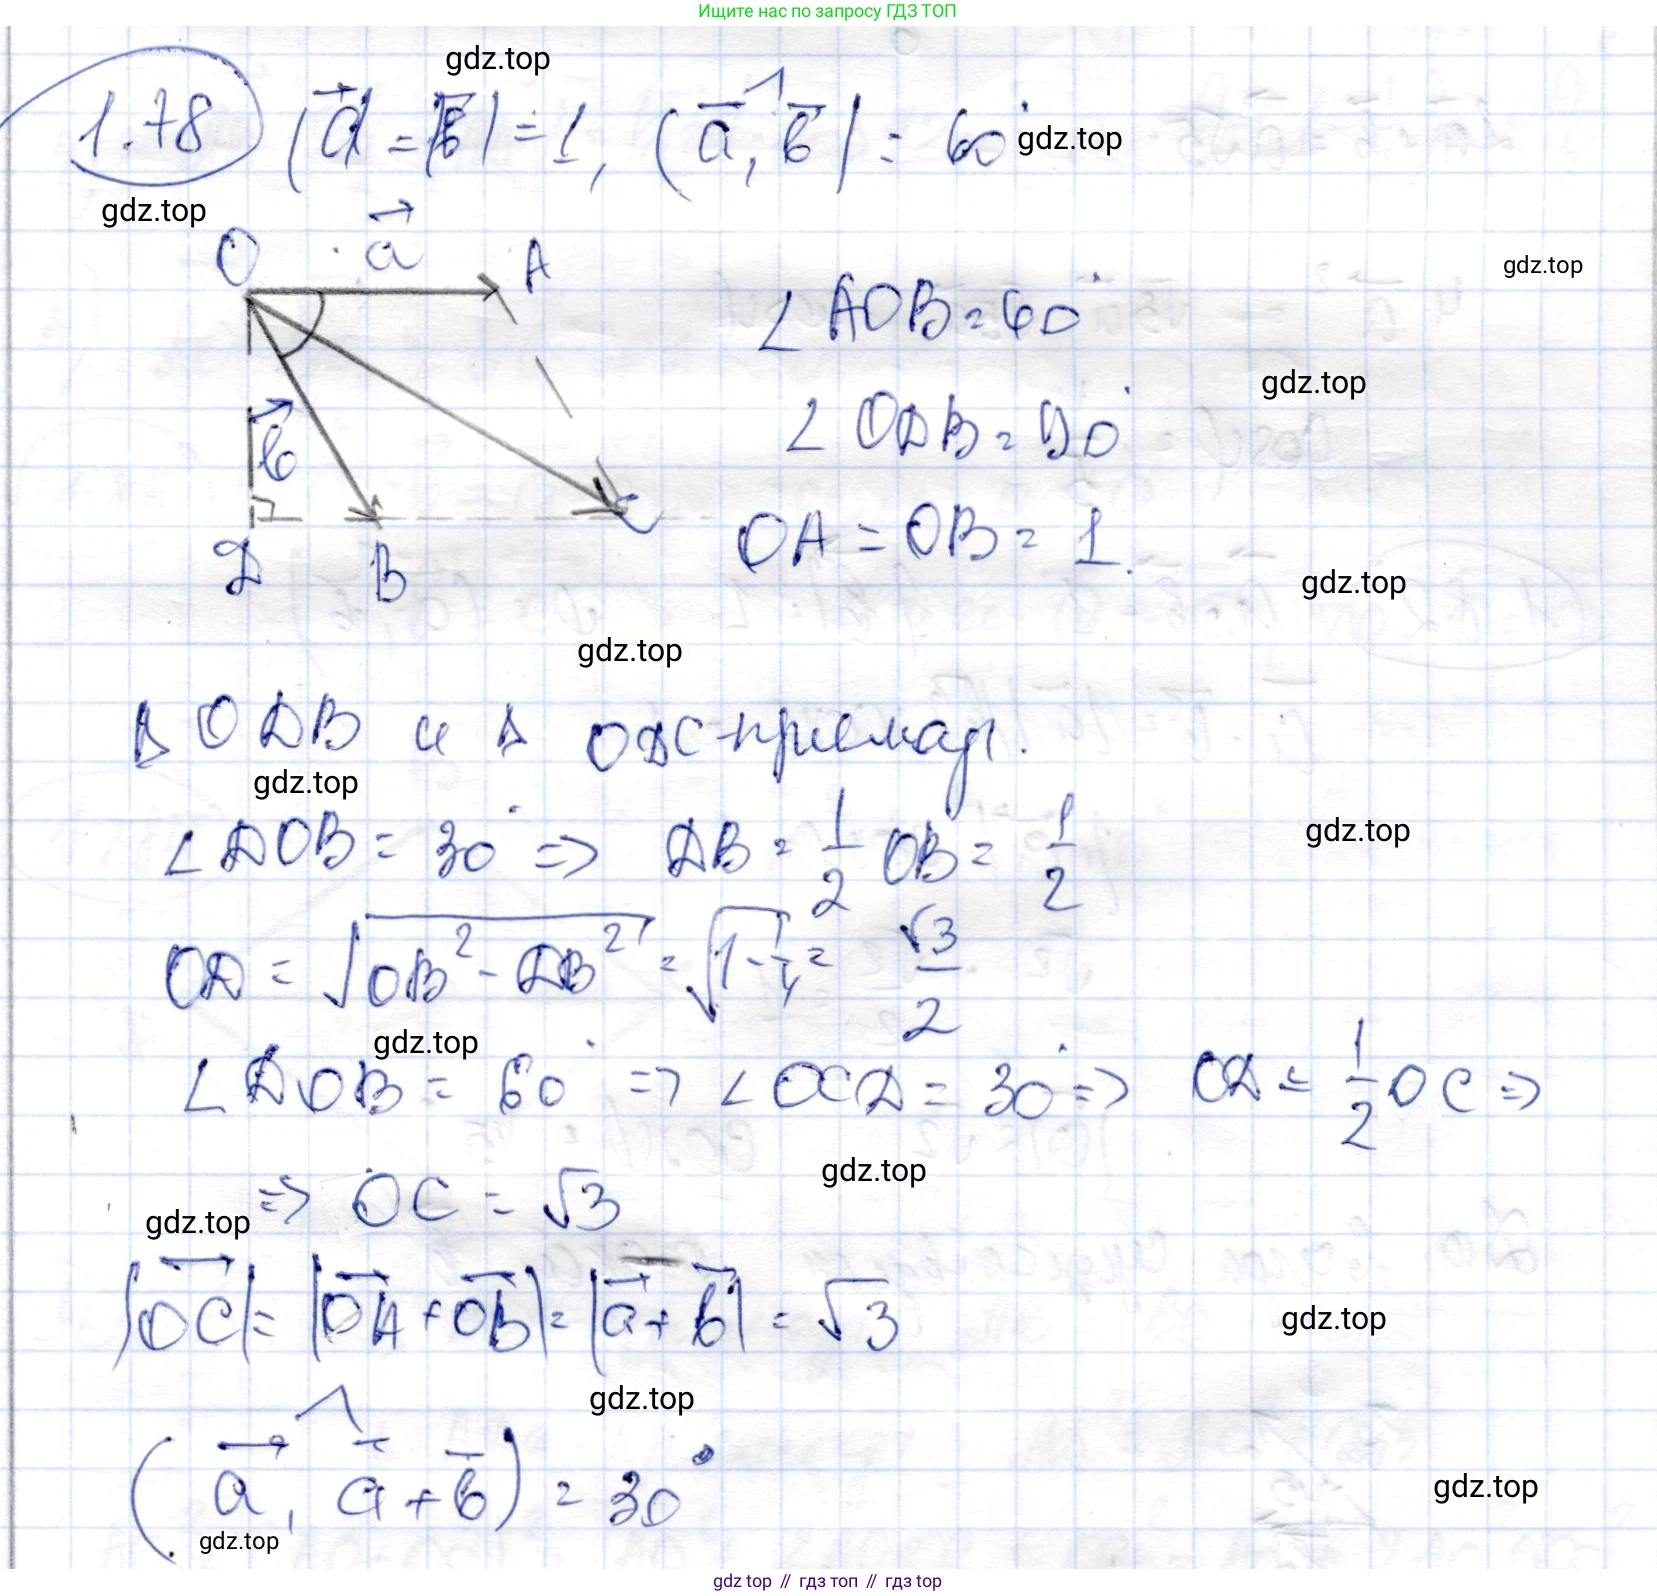 Ищите нас по запросу ГДЗ ТОП
gdz.top
1.78 |a⃗| = |b⃗| = 1, (a⃗, b⃗) = 60° gdz.top
gdz.top
O a⃗ A
gdz.top
∠AOB = 60°
gdz.top
b⃗
∠ODB = 90°
C
OA = OB = 1.
D B
gdz.top
gdz.top
Δ ODB и Δ ODC - прямоуг.
gdz.top
gdz.top
∠DOB = 30° => DB = 1/2 OB = 1/2
OD = √(OB² - DB²) = √(1 - 1/4) = √3/2
gdz.top
∠DOB = 60° => ∠OCD = 30° => OD = 1/2 OC =>
gdz.top
=> OC = √3
gdz.top
|OC⃗| = |OA⃗ + OB⃗| = |a⃗ + b⃗| = √3
gdz.top
gdz.top
(a⃗, a⃗ + b⃗) = 30°
gdz.top
gdz.top
gdz top // гдз топ // gdz top